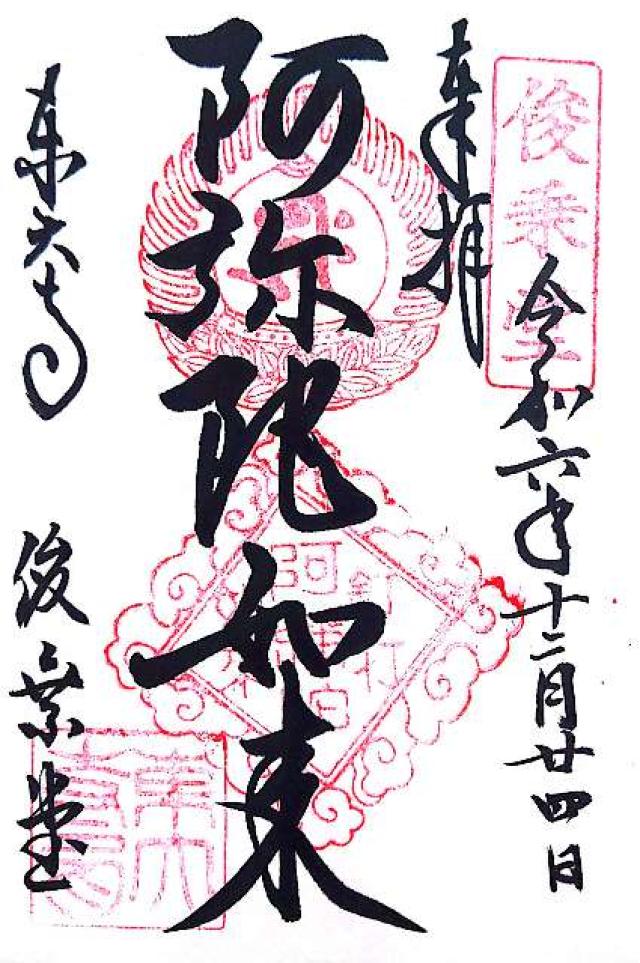 俊乗堂
令和六年十二月廿四日
奉拝
阿弥陀如来
東大寺
俊乗堂